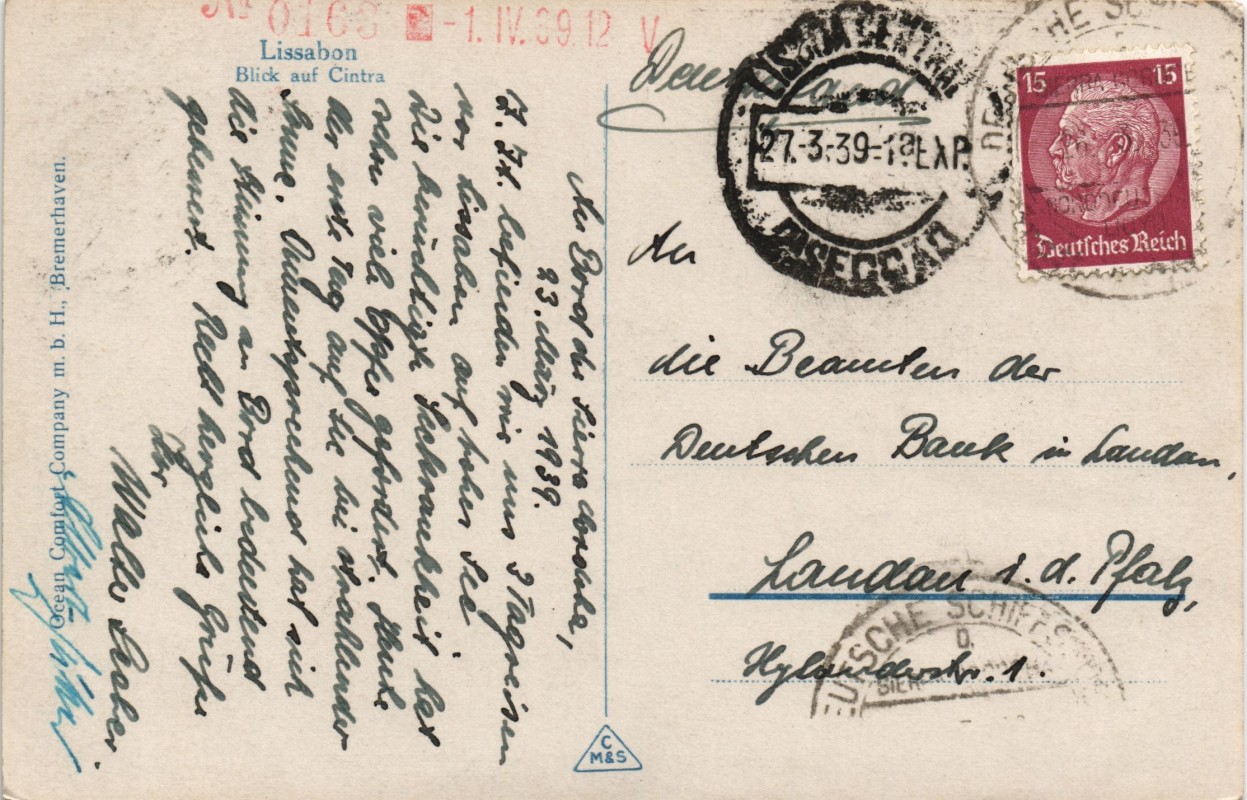 No 0163 -1.IV.39.12 V
Lissabon
Blick auf Cintra
An Bord der Sierra Cordoba,
23. März 1939.
Z. Zt. befinden wir uns 2 Tagreisen
vor Lissabon auf hoher See
Die berüchtigte Seekrankheit hat
schon viele Opfer gefordert. Heute
der erste Tag auf See bei strahlender
Sonne. Dementsprechend hat sich
die Stimmung an Bord bedeutend
gebessert. Recht herzliche Grüße
Ihr
Walter
Ocean Comfort Company m. b. H., Bremerhaven.
C
M&S
Deutschland
LISBOA CENTRAL
27-3-39-1
EXP.
15 15
Deutsches Reich
An
die Beamten der
Deutschen Bank in Landau,
Landau i. d. Pfalz,
DEUTSCHE SCHIFFS
D.